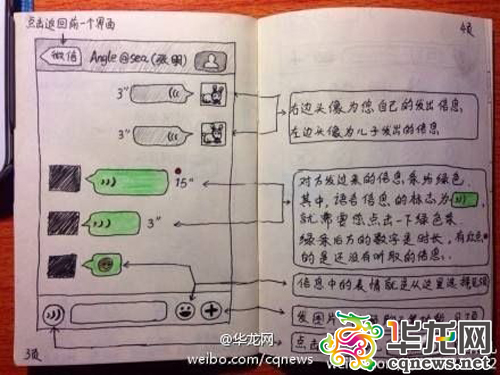 点击返回前一个界面
微信
Angle@sea(张明)
3"
3"
15"
3"
3页
4页
右边头像为您自己的发出信息
左边头像为儿子发出的信息
对方发过来的信息条为绿色.
其中,语音信息的标志为
就需要您点击一下绿色条
绿条后方的数字是时长,有红点
的是还没有听取的信息.
信息中的表情就是从这里选择
发图片
点击
@华龙网
weibo.com/cqnews
weibo.com/
华龙网
CQNEWS.NET